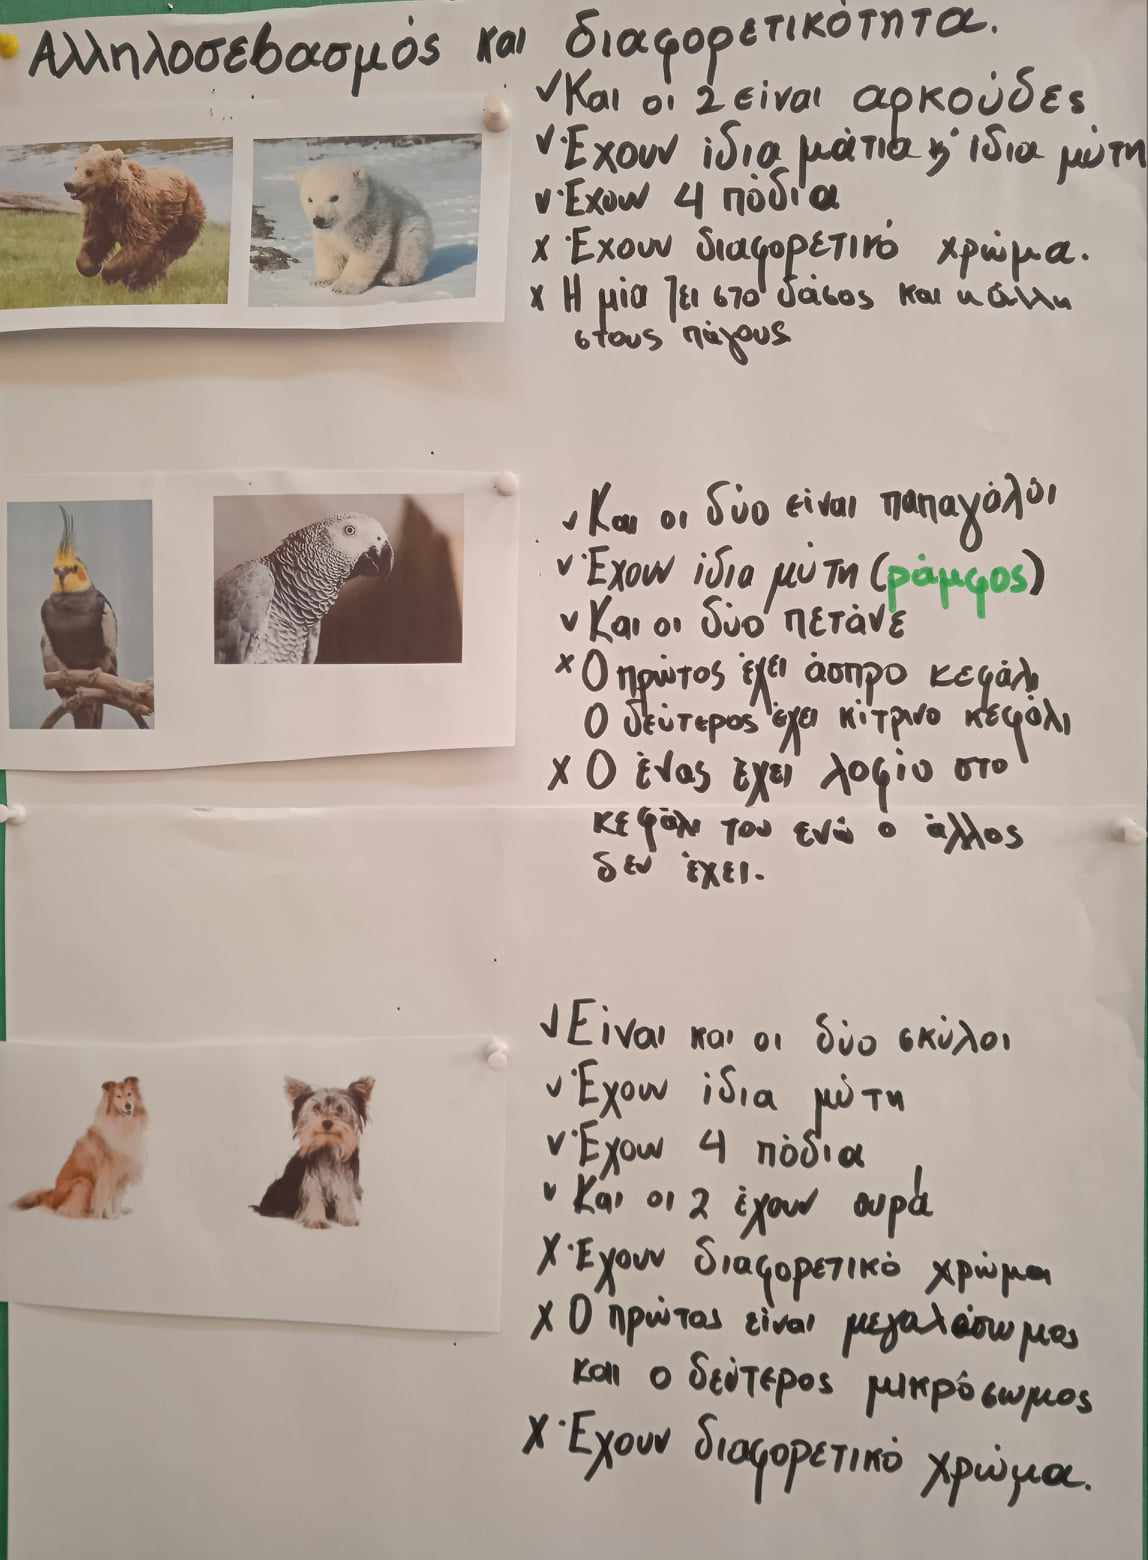 Αλληλοσεβασμός και διαφορετικότητα.
✓ Και οι 2 είναι αρκούδες
✓ Έχουν ίδια μάτια κ' ίδια μύτη
✓ Έχουν 4 πόδια
x Έχουν διαφορετικό χρώμα.
x Η μία ζει στο δάσος και η άλλη
στους πάγους
✓ Και οι δύο είναι παπαγάλοι
✓ Έχουν ίδια μύτη (ράμφος)
✓ Και οι δύο πετάνε
x Ο πρώτος έχει άσπρο κεφάλι
Ο δεύτερος έχει κίτρινο κεφάλι
x Ο ένας έχει λοφίο στο
κεφάλι του ενώ ο άλλος
δεν έχει.
✓ Είναι και οι δύο σκύλοι
✓ Έχουν ίδια μύτη
✓ Έχουν 4 πόδια
✓ Και οι 2 έχουν ουρά
x Έχουν διαφορετικό χρώμα
x Ο πρώτος είναι μεγαλόσωμος
και ο δεύτερος μικρόσωμος
x Έχουν διαφορετικό χρώμα.